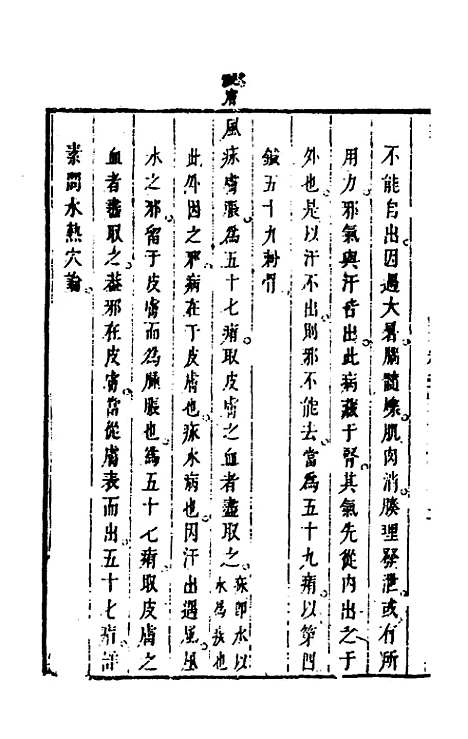 不能自出因遇大暑腦髓爍肌肉消腠理發泄或有所
用力邪氣與汗皆出此病藏于腎其氣先從内出之于
外也是以汗不出則邪不能去當為五十九痏以第四
鍼五十九刺骨
風㽷膚脹為五十七痏取皮膚之血者盡取之
㽷即水以
水為㽷也
此外因之邪病在于皮膚也㽷水病也因汗出遇風風
水之邪留于皮膚而為腫脹也為五十七痏取皮膚之
血者盡取之葢邪在皮膚當從膚表而出五十七痏詳
素問水熱穴論